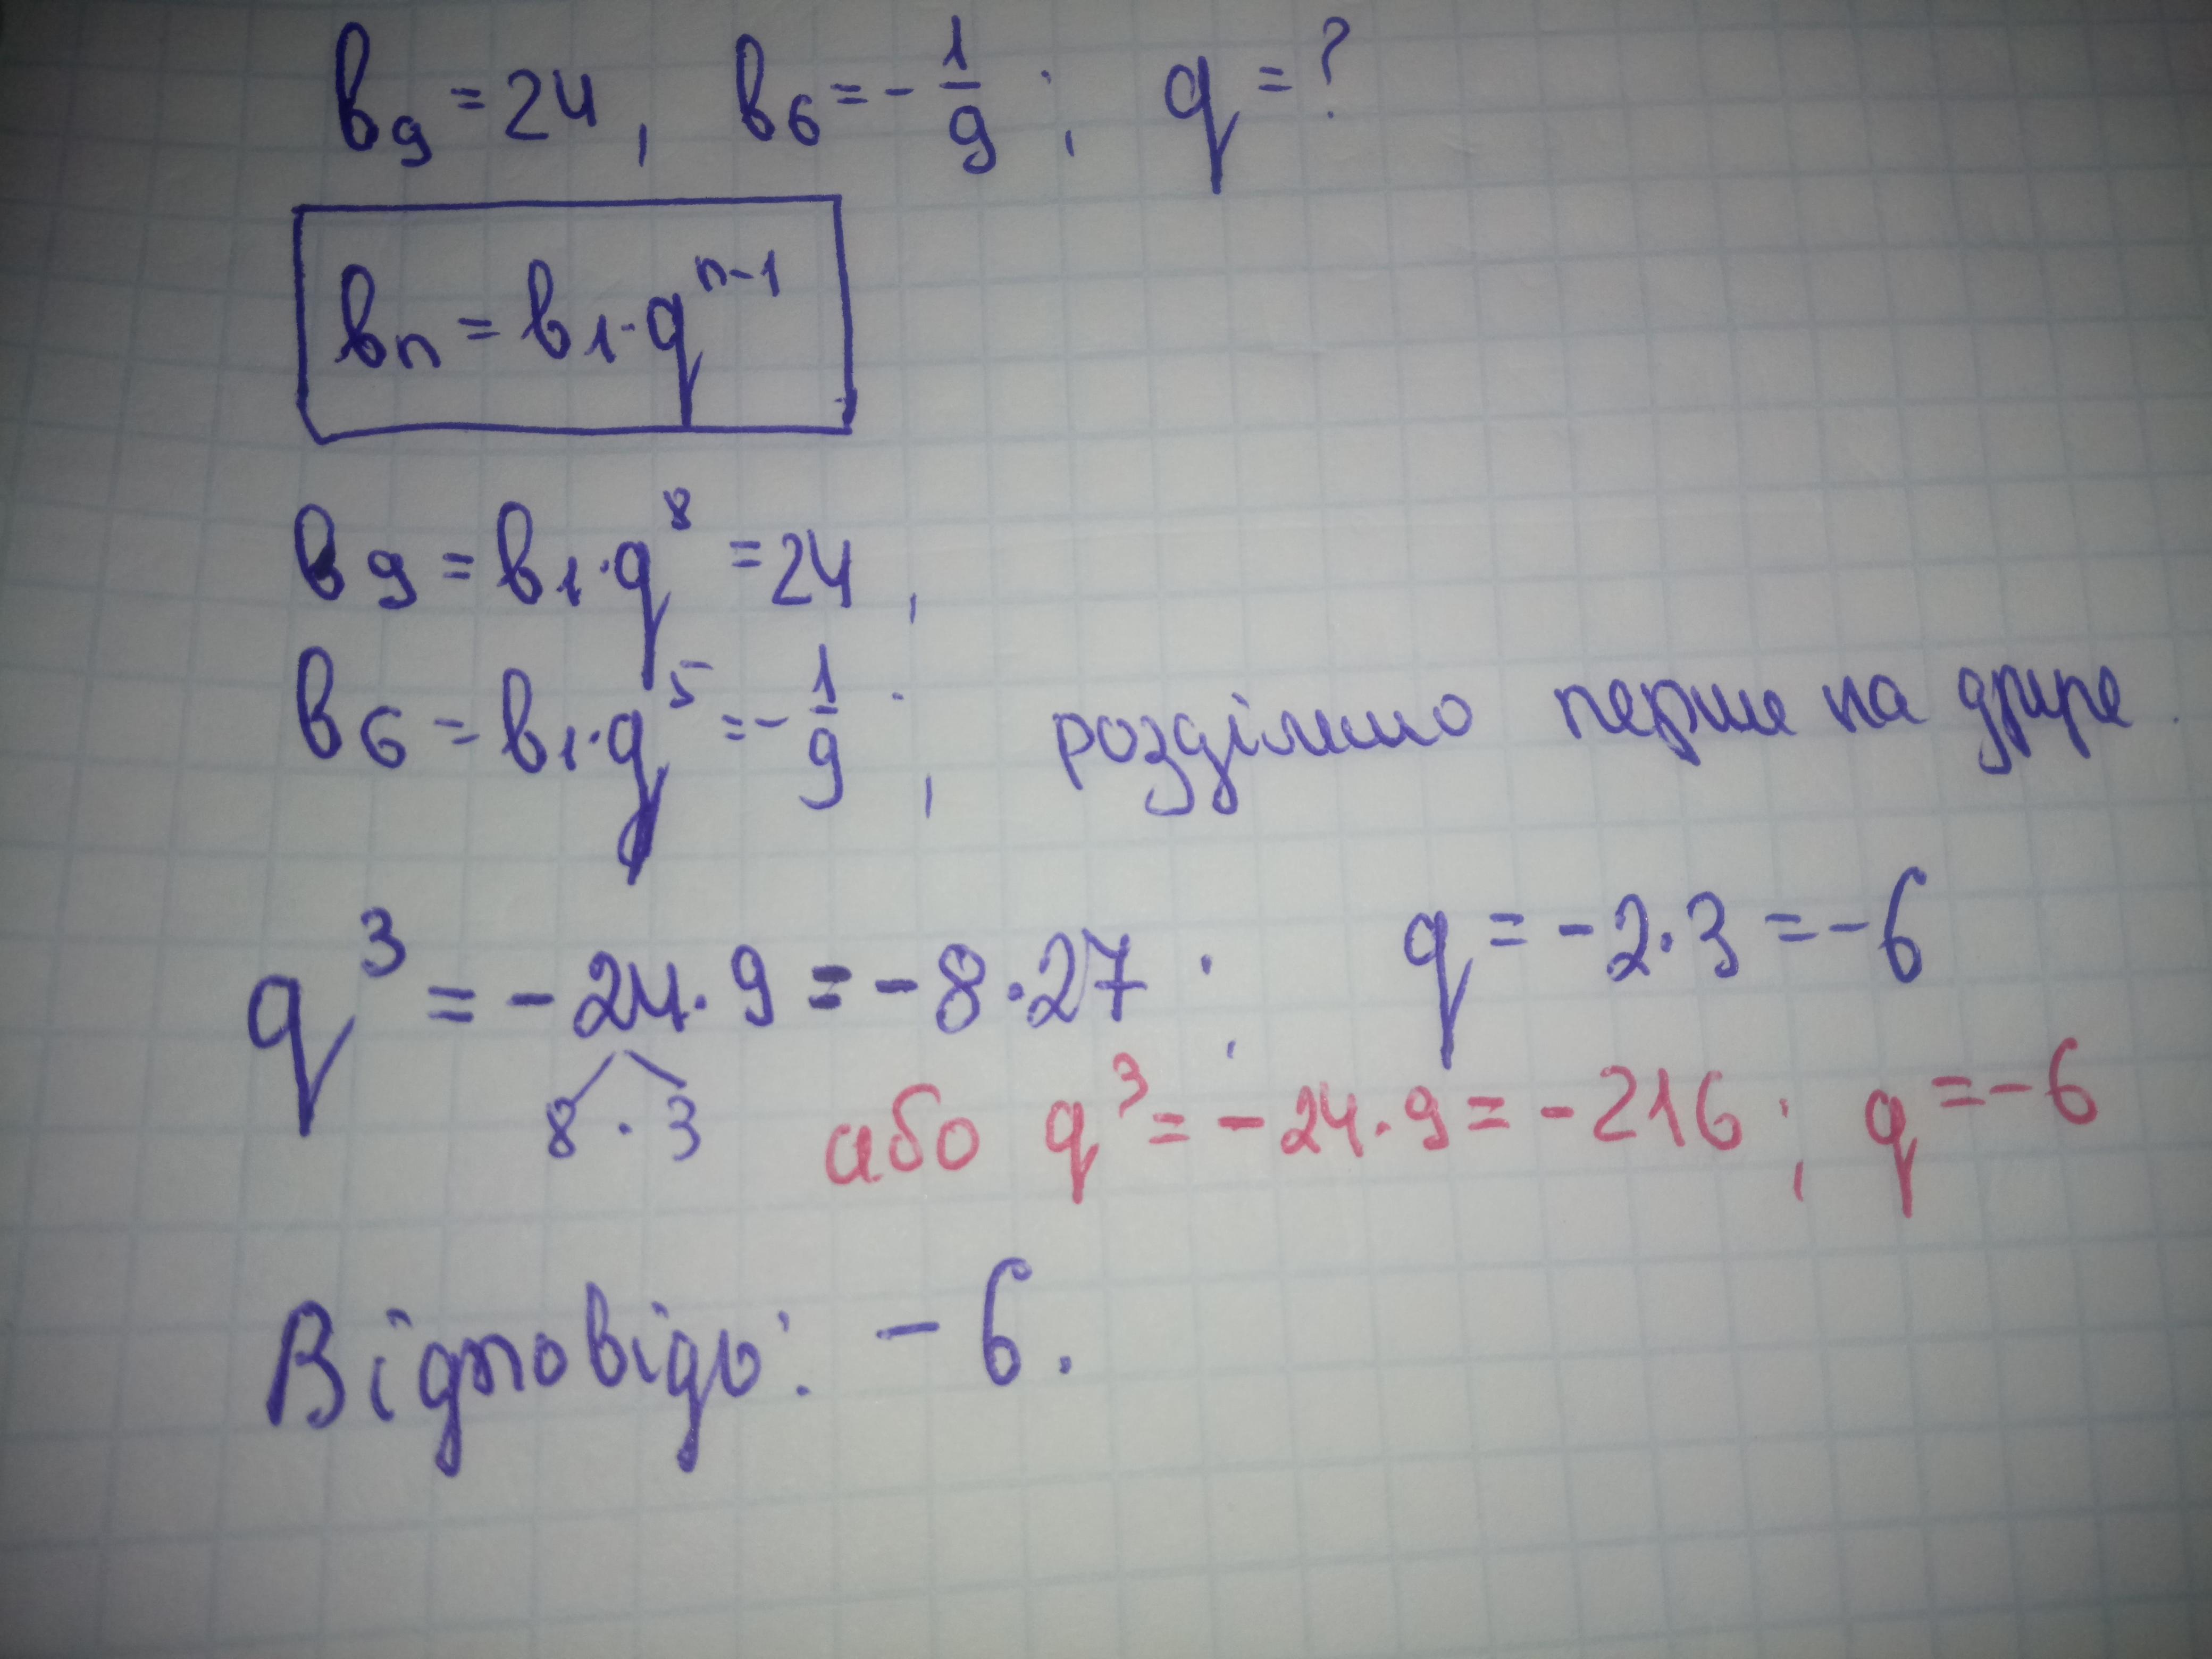 в₉ = 24, в₆ = - 1/9 ; q = ?
вₙ = в₁·qⁿ⁻¹
в₉ = в₁·q⁸ = 24,
в₆ = в₁·q⁵ = - 1/9 ; розділимо перше на друге.
q³ = - 24·9 = - 8·27 ; q = - 2·3 = - 6
8 · 3 або q³ = - 24·9 = - 216 ; q = - 6
Відповідь: - 6.